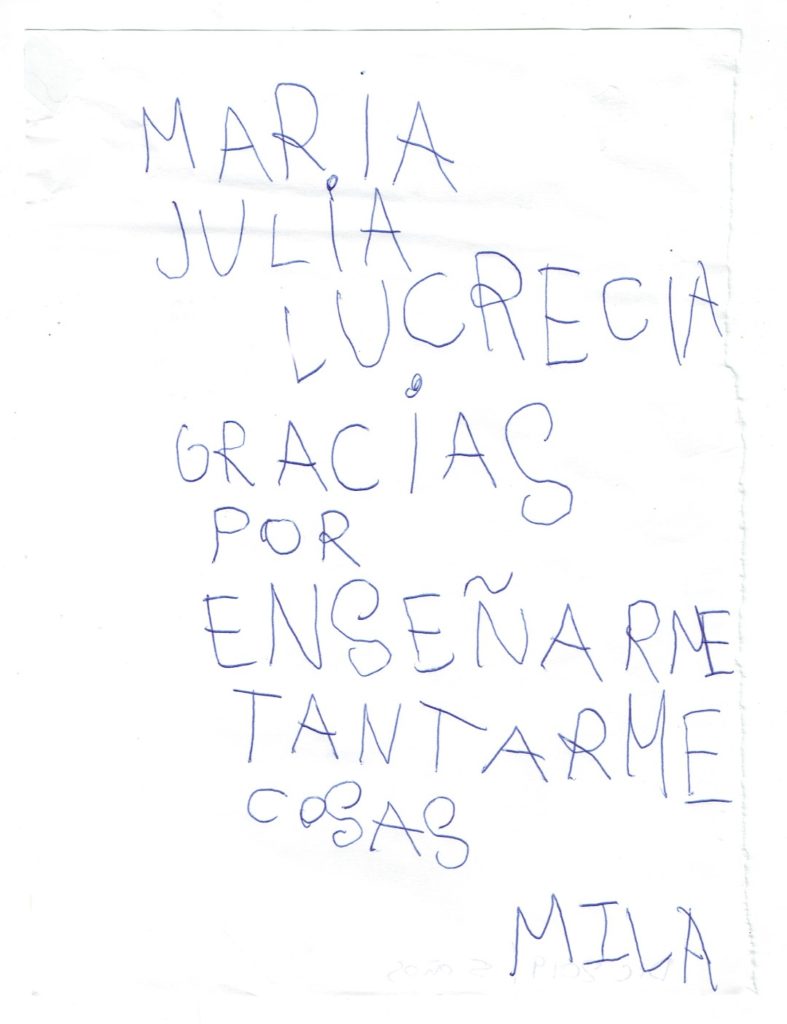 MARiA
JULiA
LUCRECIA
GRACiAS
POR
ENSEÑARME
TANTARME
COSAS
MILA